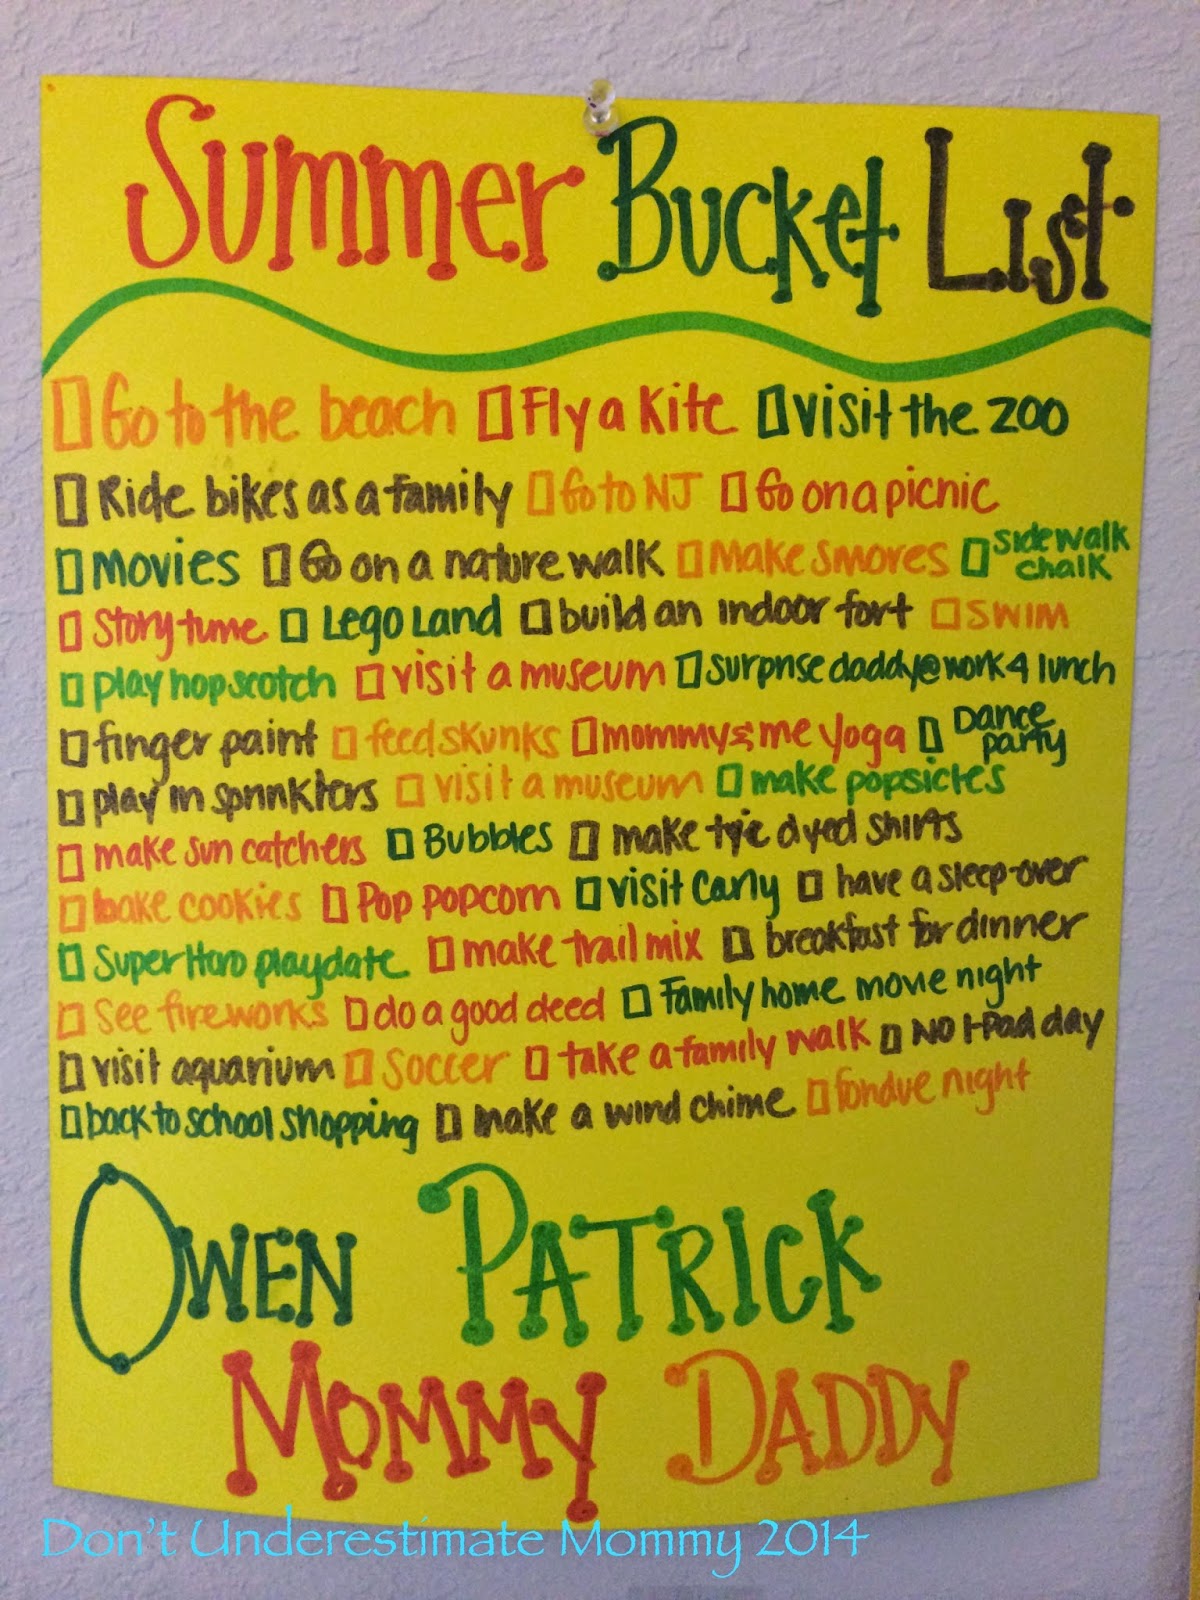 Summer Bucket List
☐ Go to the beach ☐ Fly a Kite ☐ visit the zoo
☐ Ride bikes as a family ☐ Go to NJ ☐ Go on a picnic
☐ movies ☐ Go on a nature walk ☐ Make smores ☐ sidewalk chalk
☐ Story time ☐ Lego Land ☐ build an indoor fort ☐ SWIM
☐ play hopscotch ☐ visit a museum ☐ surprise daddy@work 4 lunch
☐ finger paint ☐ feed skunks ☐ mommy & me yoga ☐ Dance party
☐ play in sprinklers ☐ visit a museum ☐ make popsicles
☐ make sun catchers ☐ Bubbles ☐ make tye dyed shirts
☐ bake cookies ☐ Pop popcorn ☐ visit Carly ☐ have a sleep-over
☐ Super Hero playdate ☐ make trail mix ☐ breakfast for dinner
☐ See fireworks ☐ do a good deed ☐ Family home movie night
☐ visit aquarium ☐ Soccer ☐ take a family walk ☐ NO I-Pad day
☐ back to school shopping ☐ make a wind chime ☐ fondue night
OWEN PATRICK
MOMMY DADDY
Don't Underestimate Mommy 2014